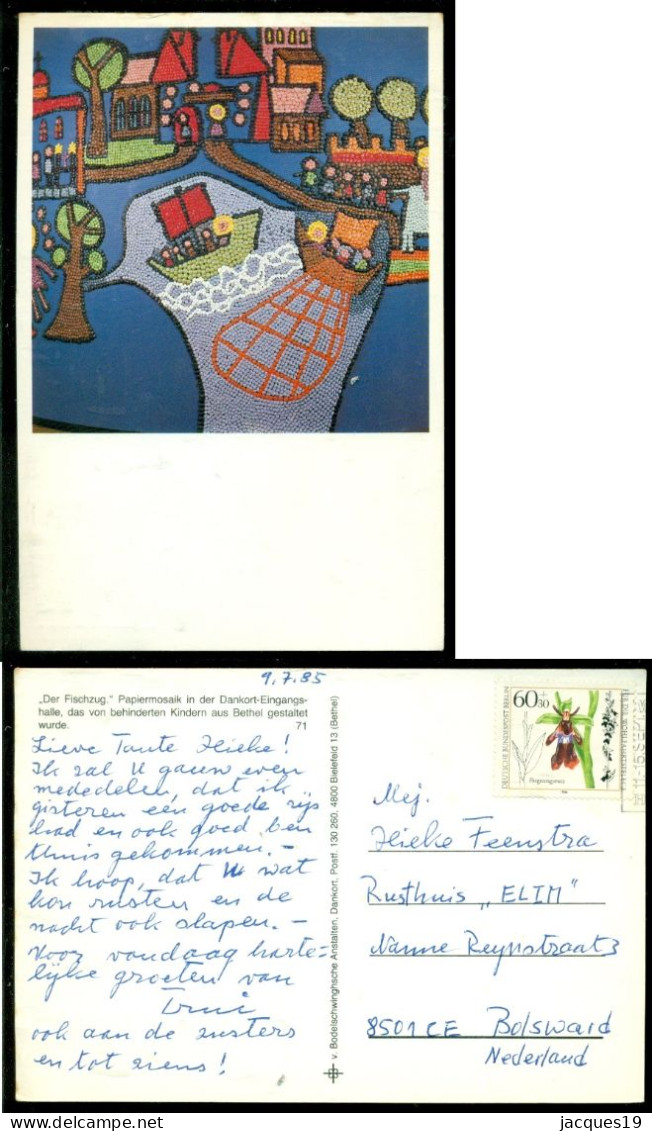 9.7.85
„Der Fischzug.“ Papiermosaik in der Dankort-Eingangs-
halle, das von behinderten Kindern aus Bethel gestaltet
wurde. 71
Lieve Tante Hieke!
Ik zal U gauw even
mededelen, dat ik
gisteren een goede rijs
had en ook goed ben
thuis gekommen. –
Ik hoop, dat U wat
kon rusten en de
nacht ook slapen. –
Voor vandaag harte=
lijke groeten van
Trui
ook aan de zusters
en tot ziens!
v. Bodelschwinghsche Anstalten, Dankort, Postf. 130 260, 4800 Bielefeld 13 (Bethel)
60+30
DEUTSCHE BUNDESPOST BERLIN
Fliegenragwurz
Mej.
Hieke Feenstra
Rusthuis „ELIM“
Nanne Reynstraat 3
8501 CE Bolsward
Nederland
jacques19